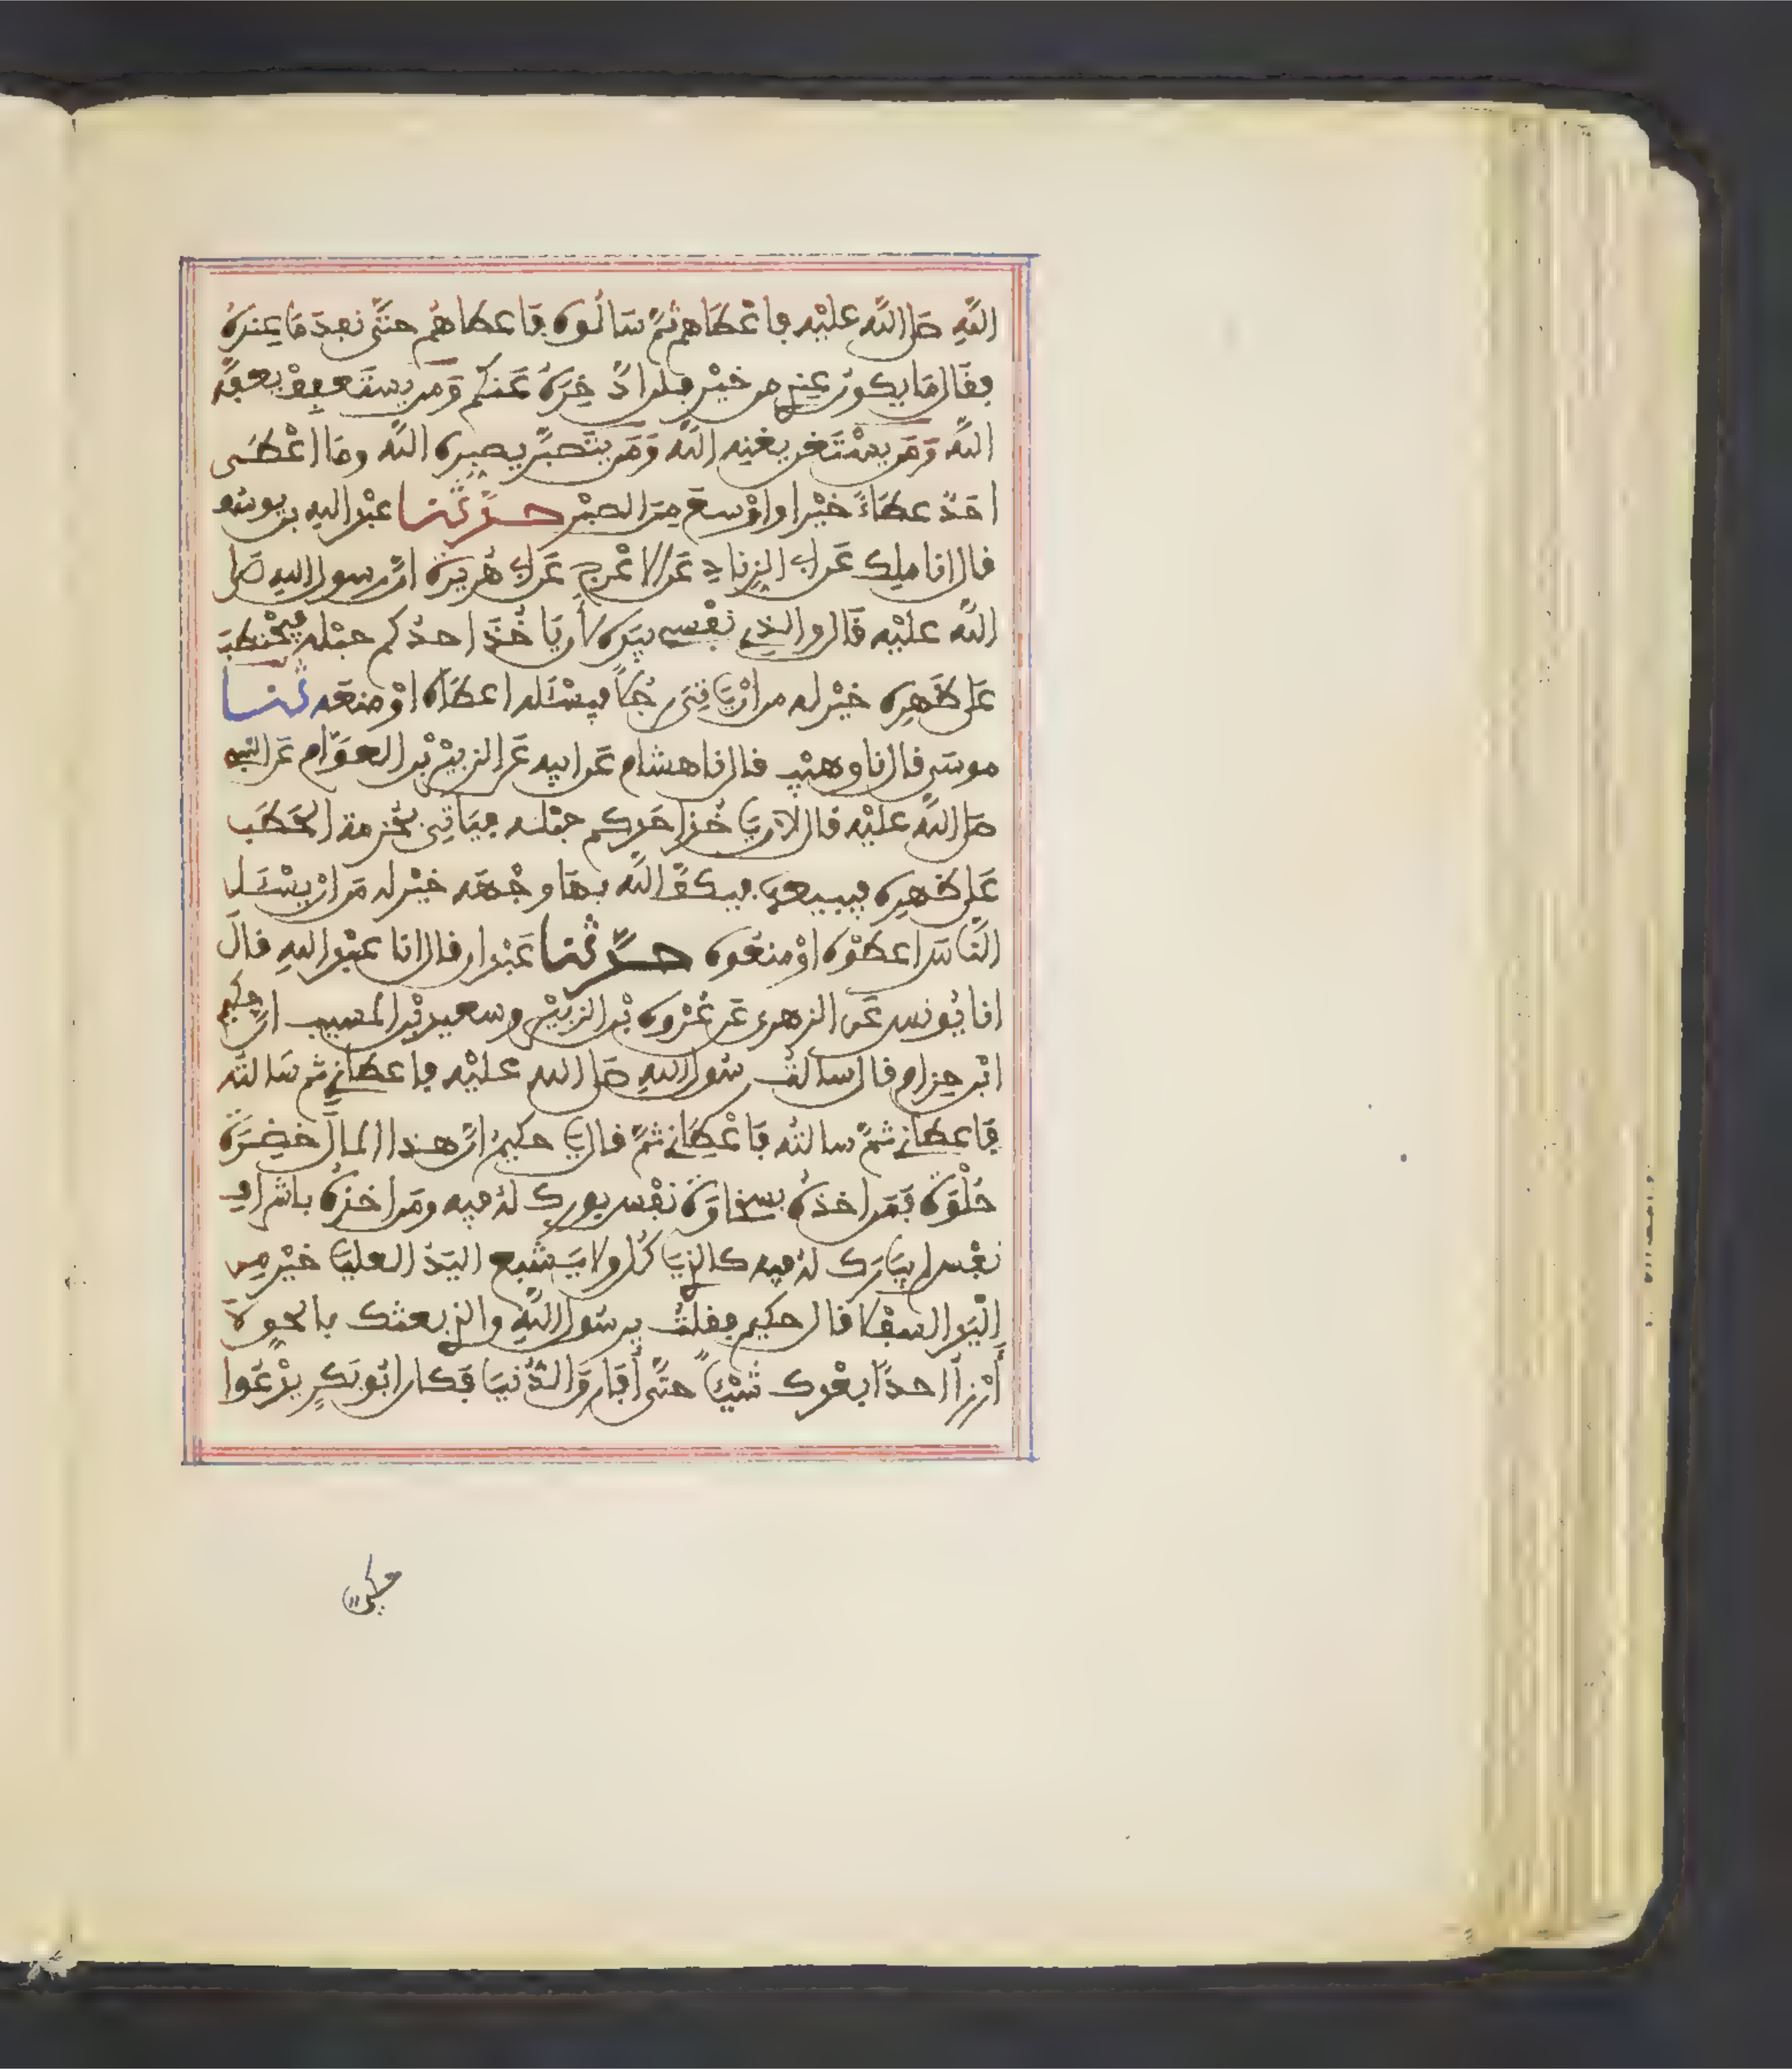 اللَّهِ صَلَى اللَّه عليْه فاعْطَاهم ثمَّ سَالُوه فَاعطاهُم حتَّى نفِدَ مَا عِندَهُ
فقَال مَا يكونُ عِندِي من خيْر فلن ادَّخِرَهُ عَنكُم وَمَن يستَعفِفْ يعفَّه
اللَّه وَمَن يسْتَغن يغنه اللَّه وَمَن يتَصبَّر يصبره اللَّه ومَا اعْطَى
احَدٌ عطَاءً خيْرا واوْسعَ مِنَ الصبْر حدَّثنا عبْد الله بن يوسُف
قال انا ملِك عَن ابي الزِنادِ عَن الاعْرج عَن ابي هُريْرة انَّ رسول الله صَلى
اللَّه عليْه قَال والذِي نفْسي بيَدِه لأن يَاخُذَ احدُكم حبْله فيحْتطبَ
عَلى ظَهرِه خيْر له من انْ يَاتِيَ رجُلاً فيسْئَله اعطَاه اوْ منعَه ثنا
موسَى قال نا وهيْب قال نا هشام عَن ابيه عَن الزبيْر بْن العوَّام عَن النبي
صَلى اللَّه عليْه قال لأن يَاخُذ احَدكم حبْله فيَاتِيَ بحُزمة الحَطَب
عَلى ظهرِه فيبيعهَا فيكفَّ اللَّه بهَا وجْهَه خيْر له مَن انْ يسْئَل
النَّاسَ اعطَوْه اوْ منعُوه حدَّثنا عَبْدان قال انا عبْد الله قالَ
انا يُونس عَن الزهرى عَن عُرْوة بْن الزبيْر وسعيد بْن المسيب ان حكيم
ابْن حِزام قال سالتُ رسُول اللهِ صَلى الله عليْه فاعطانِي ثم سَالتُه
فَاعطانِي ثمَّ سالتُه فَاعْطَانِي ثمَّ قال يَا حكيمُ انَّ هذا المالَ خَضِرَة
حُلْوَة فَمَن اخذهُ بسخاوَة نفْس بورِك لهُ فيه ومَن اخذهُ باشراف
نفْس لم يبَارَك لهُ فيه كالذِي يَاكُل ولا يَشْبع اليَدُ العليَا خيْر مِن
الْيَد السفْلَا قال حكيم فقلتُ يرسُول اللَّهِ والذِي بعثك بالحَق لا
أرْزأ احدًا بعْدك شيْئاً حتَّى أفَارقَ الدُّنيَا فَكان ابُو بَكرٍ يدْعُوا
حكيما